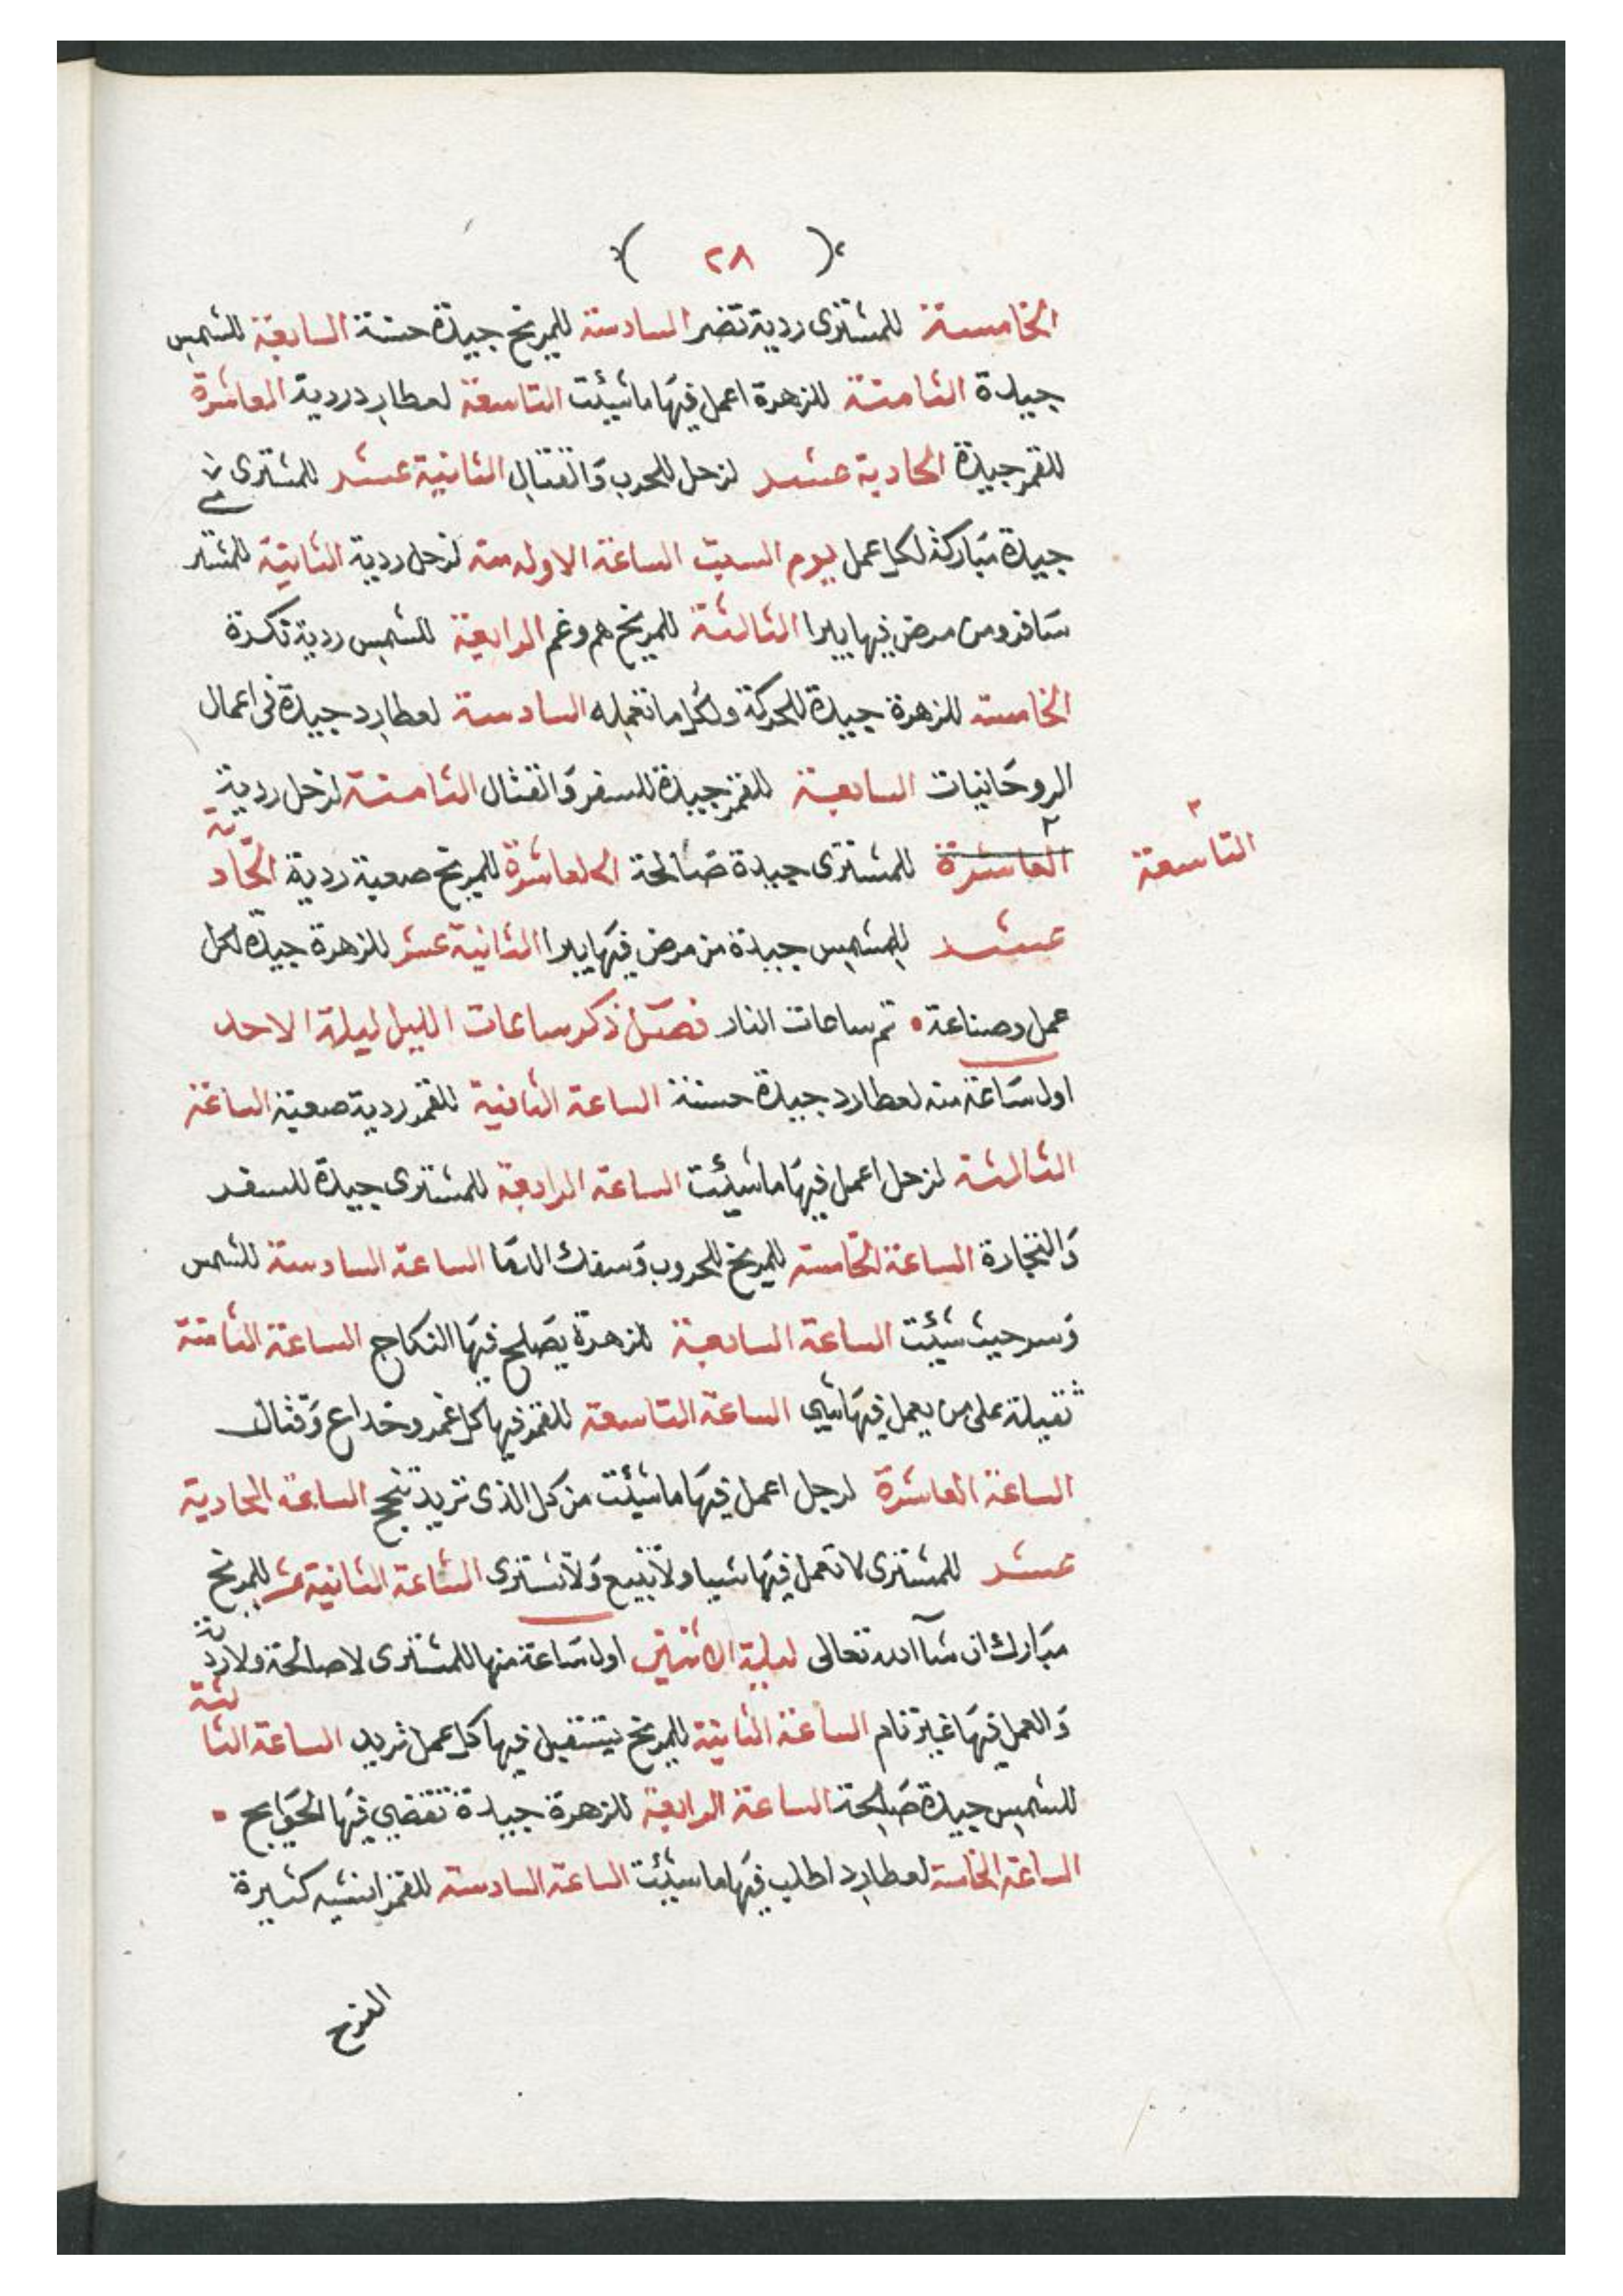 ( ٢٨ )
الخامسة للمشترى ردية تضر السادسة للمريخ جيدة حسنة السابعة للشمس
جيدة الثامنة للزهرة اعمل فيها ما شيئت التاسعة لعطارد ردية العاشرة
للقمر جيدة الحادية عشر لزحل للحرب والقتال الثانية عشر للمشترى
جيدة مباركة لكل عمل يوم السبت الساعة الاوله منه لزحل ردية الثانية للمشتر
سافر ومن مرض فيها يبرا الثالثة للمريخ هم وغم الرابعة للشمس ردية نكدة
الخامسة للزهرة جيدة للحركة ولكل ما تعمله السادسة لعطارد جيدة فى اعمال
الروحانيات السابعة للقمر جيدة للسفر والقتال الثامنة لزحل ردية
التاسعة
العاشرة للمشترى جيدة صالحة العاشرة للمريخ صعبة ردية الحادية
عشر للشمس جيدة من مرض فيها يبرا الثانية عشر للزهرة جيدة لكل
عمل وصناعة • تم ساعات النار فصل ذكر ساعات الليل ليلة الاحد
اول ساعة منه لعطارد جيدة حسنة الساعة الثانية للقمر ردية صعبة الساعة
الثالثة لزحل اعمل فيها ما شيئت الساعة الرابعة للمشترى جيدة للسفر
والتجارة الساعة الخامسة للمريخ للحروب وسفك الدما الساعة السادسة للشمس
وسر حيث شيئت الساعة السابعة للزهرة يصلح فيها النكاح الساعة الثامنة
ثقيلة على من يعمل فيها شي الساعة التاسعة للقمر فيها كل غمر وخداع وقتال
الساعة العاشرة لرجل اعمل فيها ما شيئت من كل الذى تريد تنجح الساعة الحادية
عشر للمشترى لا تعمل فيها شيا ولا تبيع ولا تشترى الساعة الثانية عشر للمريخ
مبارك ان شآ الله تعالى ليلة الاثنين اول ساعة منها للمشترى لا صالحة ولا ردية
والعمل فيها غير تام الساعة الثانية للمريخ يتثقيل فيها كل عمل تريد الساعة الثالثة
للشمس جيدة صالحة الساعة الرابعة للزهرة جيدة تقضي فيها الحوايج •
الساعة الخامسة لعطارد اطلب فيها ما شيئت الساعة السادسة للقمر كثيرة
الفرح